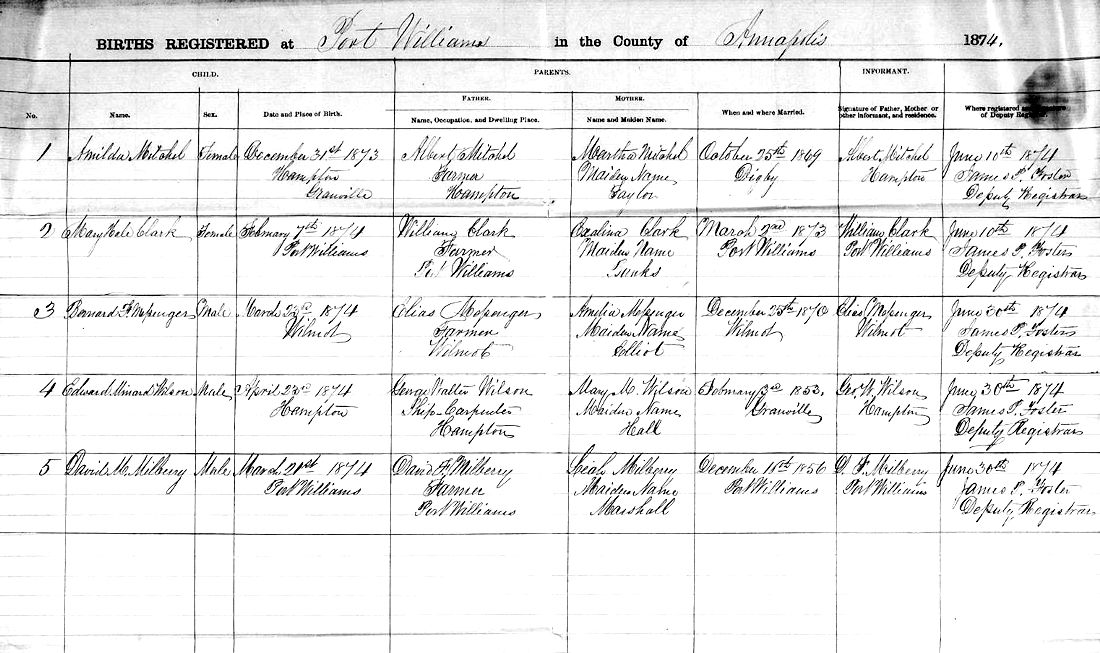 BIRTHS REGISTERED at Port Williams in the County of Annapolis 1874.
CHILD. PARENTS. INFORMANT.
FATHER. MOTHER.
No. Name. Sex. Date and Place of Birth. Name, Occupation, and Dwelling Place. Name and Maiden Name. When and where Married. Signature of Father, Mother or other informant, and residence. Where registered and Signature of Deputy Registrar.
1 Amilda Mitchel Female December 31st 1873 Albert Mitchel Martha Mitchel October 25th 1869 Albert Mitchel June 10th 1874
Hampton Farmer Maiden Name Digby Hampton James P. Foster
Granville Hampton Taylor Deputy Registrar
2 Mary Clark Female February 7th 1874 William Clark Clark March 2nd 1873 William Clark June 10th 1874
Port Williams Farmer Maiden Name Port Williams Port Williams James P. Foster
Port Williams Deputy Registrar
3 Bernard F. Messenger Male March 23rd 1874 Elias Messenger Amelia Messenger December 25th 1870 Elias Messenger June 30th 1874
Wilmot Farmer Maiden Name Wilmot Wilmot James P. Foster
Wilmot Elliot Deputy Registrar
4 Edward Minard Wilson Male April 23rd 1874 George Walter Wilson Mary M. Wilson February 3rd 1853. Geo W. Wilson June 30th 1874
Hampton Ship-Carpenter Maiden Name Granville Hampton James P. Foster
Hampton Hall Deputy Registrar
5 David M. Milberry Male March 21st 1874 David F. Milberry Leah Milberry December 18th 1856 D. F. Milberry June 30th 1874
Port Williams Farmer Maiden Name Port Williams Port Williams James P. Foster
Port Williams Marshall Deputy Registrar